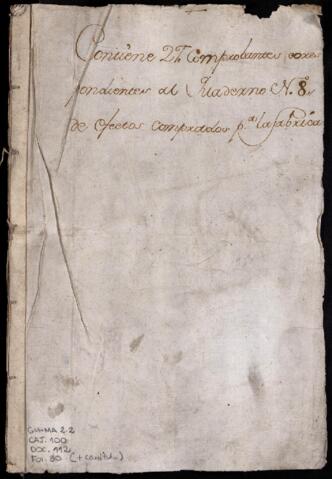 Contiene 27 Comprobantes corres
pondientes al Quaderno N.º 8,,
de Efectos Comprados p.ª la fabrica
GU-MA 2.2
CAJ. 100
DOC. 112
FOL. 30 (+ carátula)